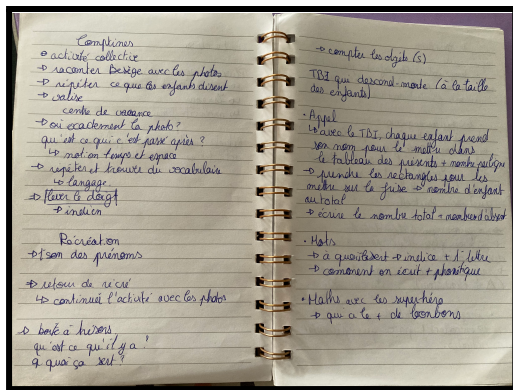 Comptines
→ activité collective
→ raconter Besège avec les photos
→ répéter ce que les enfants disent
→ valise
centre de vacance
→ où exactement la photo?
qu'est ce qui c'est passé après?
↳ notion temps et espace
→ répéter et trouver du vocabulaire
↳ langage
→ lever le doigt
→ indien
Récréation
→ son des prénoms
→ retour de récré
↳ continué l'activité avec les photos
→ boîte à trésors,
qu'est ce qu'il y a?
à quoi ça sert?
→ compter les objets (5)
TBI qui descend-monte (à la taille
des enfants)
• Appel
↳ avec le TBI, chaque enfant prend
son nom pour le mettre dans
le tableau des présents + montre
→ prendre les rectangles pour les
mettre sur la frise → nombre d'enfant
au total
→ écrire le nombre total + nombre d'absent
• Mots
→ à quoi ils sert → indice + 1e lettre
→ comment on écrit + phonétique
• Maths avec les superhéro
→ qui a le + de bonbons